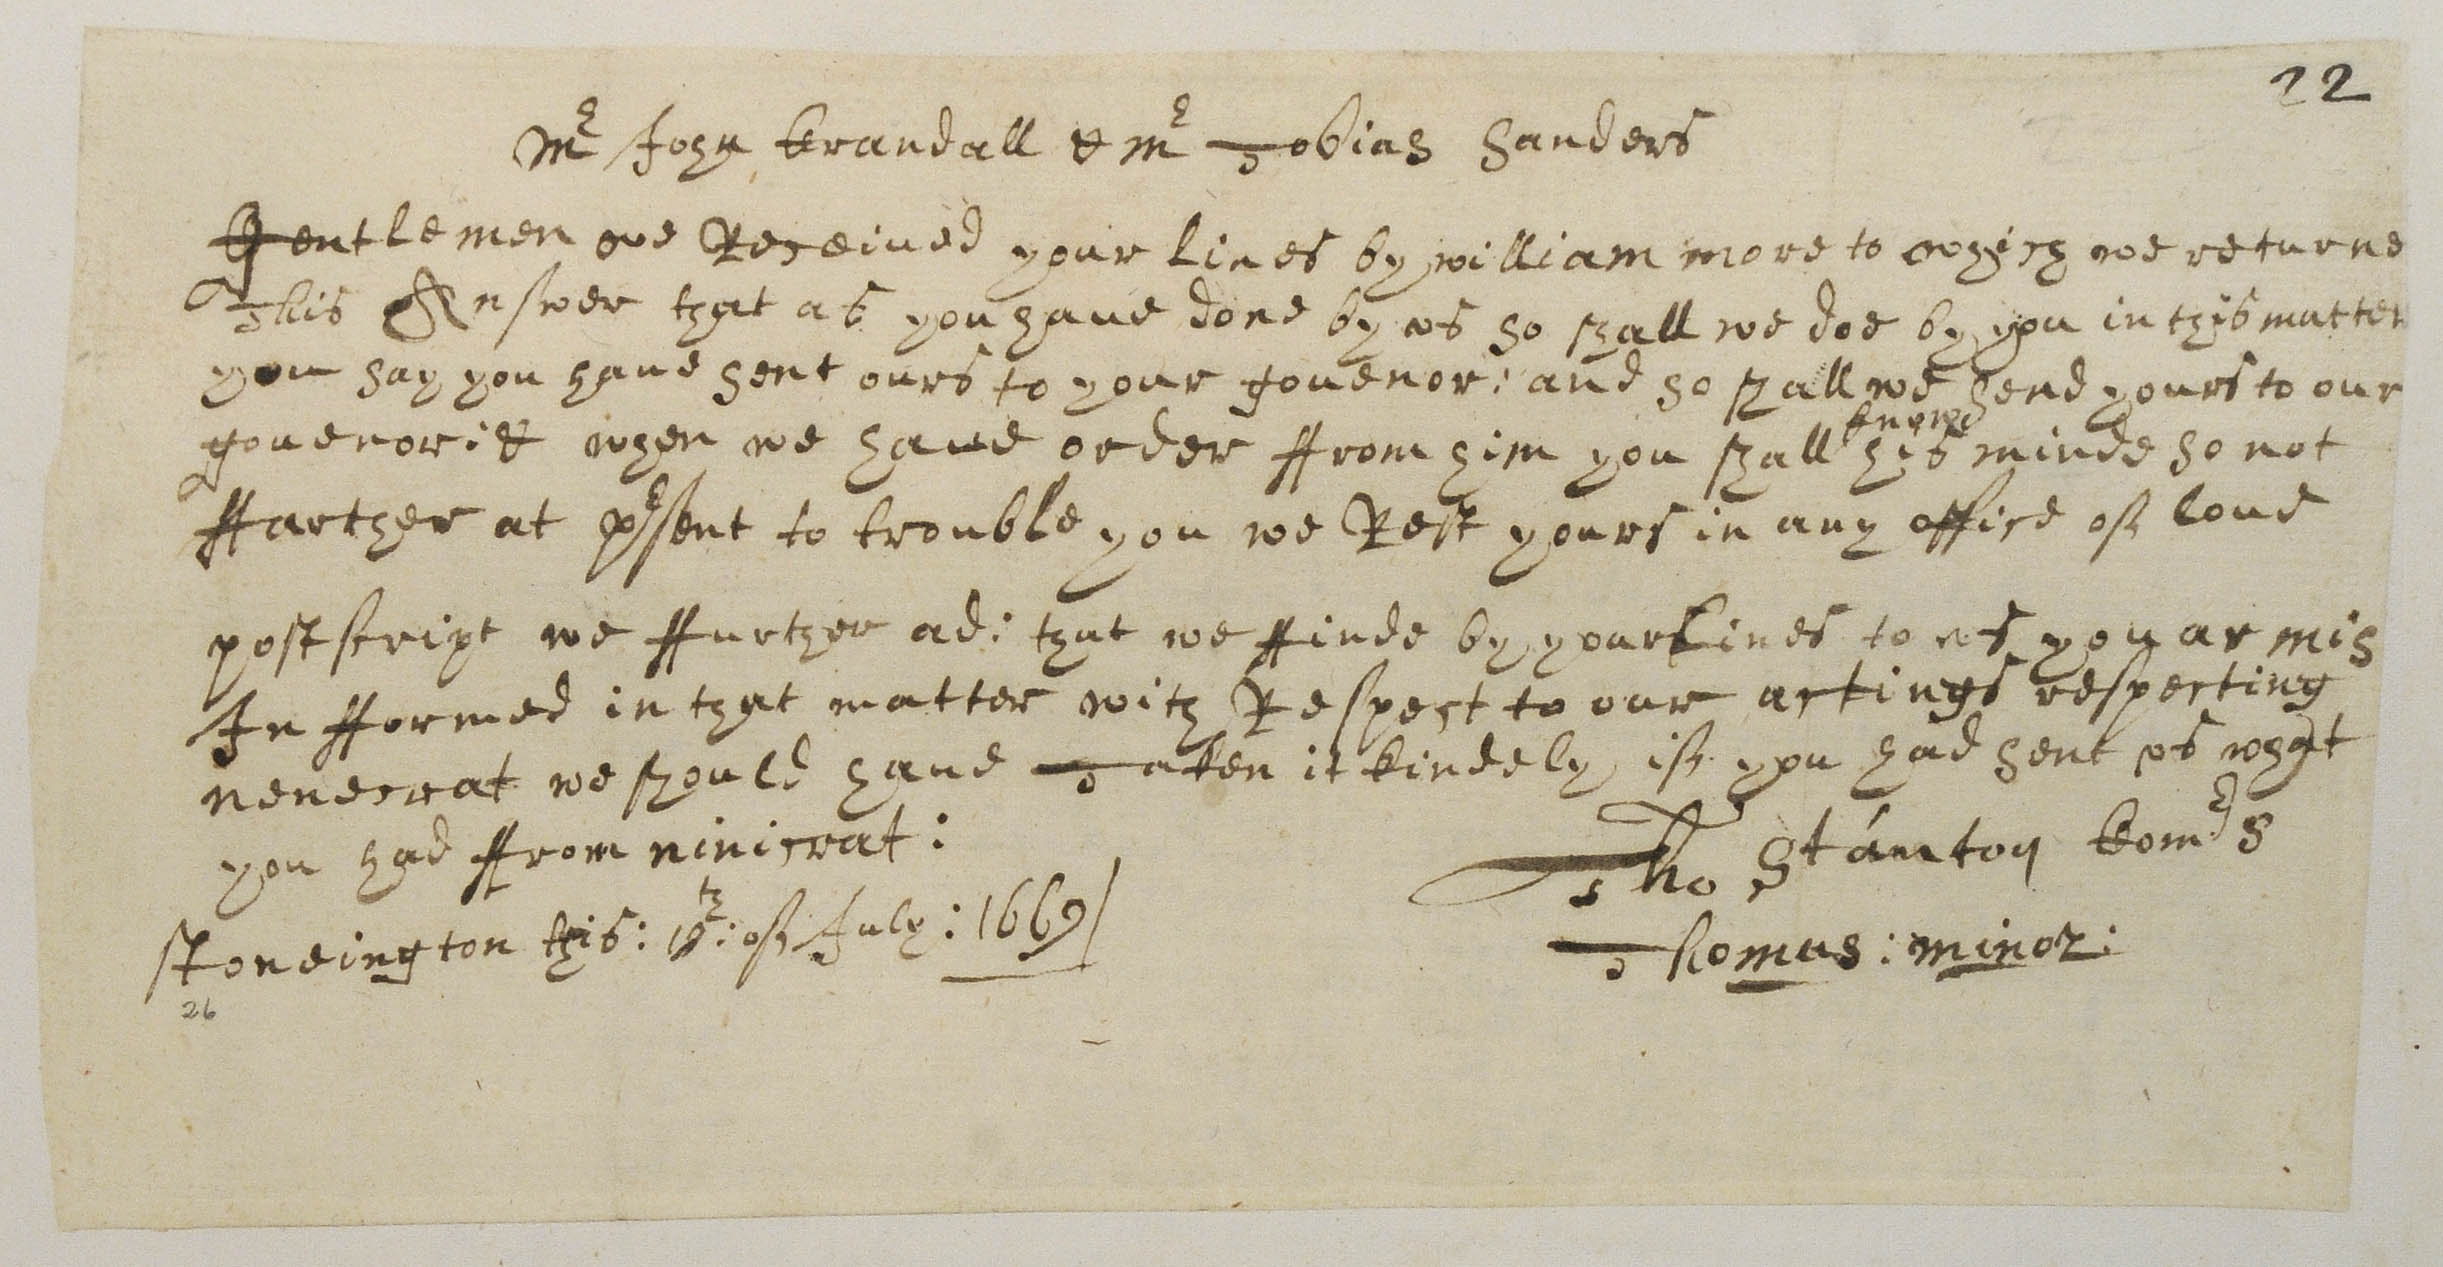 22
Mr John Crandall & Mr Tobias Sanders
Gentlemen we Receiued your lines by william more to which we returne
This Answer that as you haue done by us so shall we doe by you in this matter
you say you haue sent ours to your gouenor: and so shall we send yours to our
knowe
gouenor: & when we haue order ffrom him you shall his minde so not
ffarther at prsent to trouble you we Rest yours in any office of loue
postscript we ffurther ad: that we ffinde by your Lines to us you ar mis
In fformed in that matter with Respect to our actings respecting
nenecraat we should haue Taken it kindely if you had sent us what
you had ffrom ninicraat:
Tho Stanton Comrs
stoneington this: th: of July: 1669
Thomas: minor:
26